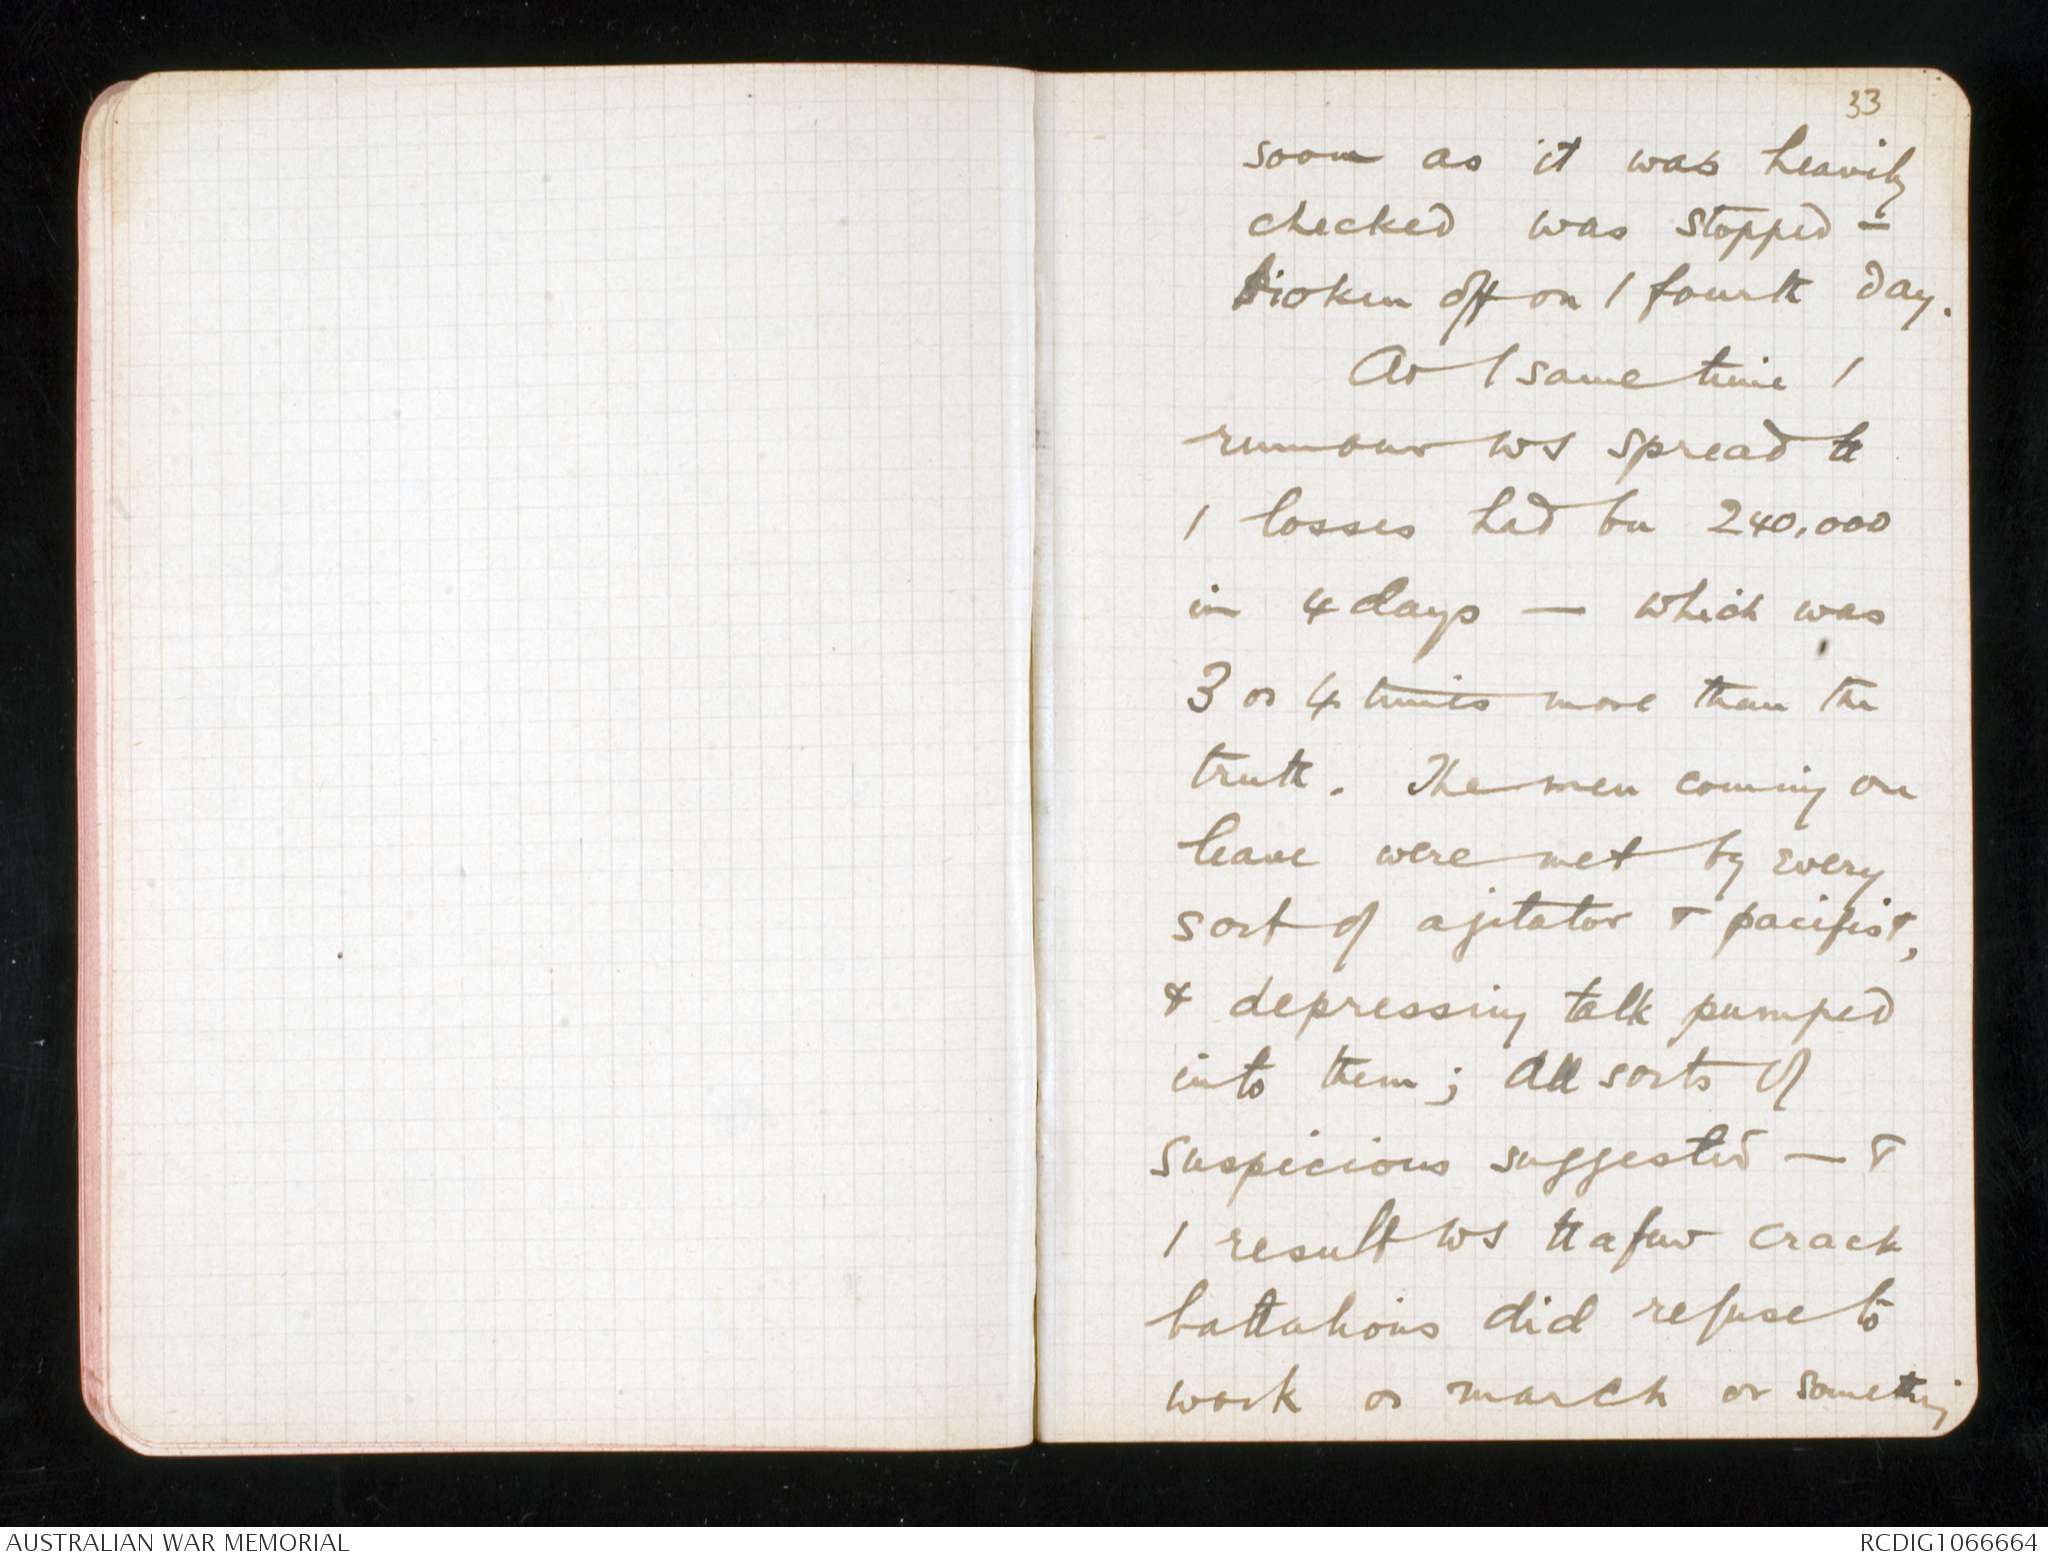 33
soon as it was heavily
checked was stopped –
broken off on / fourth day.
At / same time /
rumour ws spread tt
/ losses had bn 240,000
in 4 days — which was
3 or 4 times more than the
truth. The men coming on
leave were met by every
sort of agitator & pacifist,
& depressing talk pumped
into them; all sorts of
suspicions suggested — &
/ result ws tt a few crack
battalions did refuse to
work or march or something
AUSTRALIAN WAR MEMORIAL
RCDIG1066664